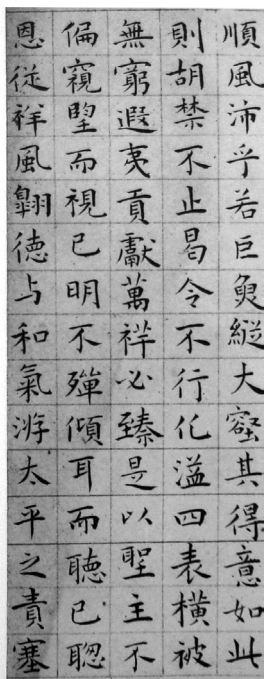 順風沛乎若巨魚縦大壑其得意如此
則胡禁不止曷令不行化溢四表横被
無窮遐夷貢獻萬祥必臻是以聖主不
偏窺望而視已明不殫傾耳而聴已聡
恩従祥風翱徳与和氣游太平之責塞